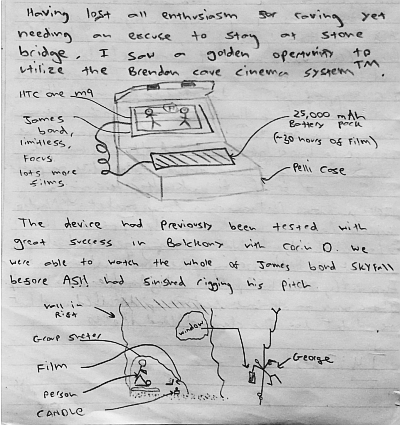 Having lost all enthusiasm for caving yet
needing an excuse to stay at stone
bridge, I saw a golden opertunity to
utilize the Brendon cave cinema system TM.
HTC one m9
James
bond,
limitless,
Focus
lots more
films
25,000 mAh
Battery pack
(~30 hours of Film)
Pelli Case
The device had previously been tested with
great success in Balckony with Corin O. we
were able to watch the whole of James bond SKYfall
before ASH had finished rigging his pitch
wall in
Rift
Group shelter
Film
Person
CANDLE
window
George